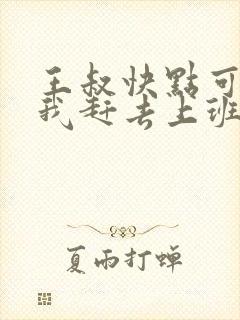 王叔快點可
我赶去上班
夏雨打蝉